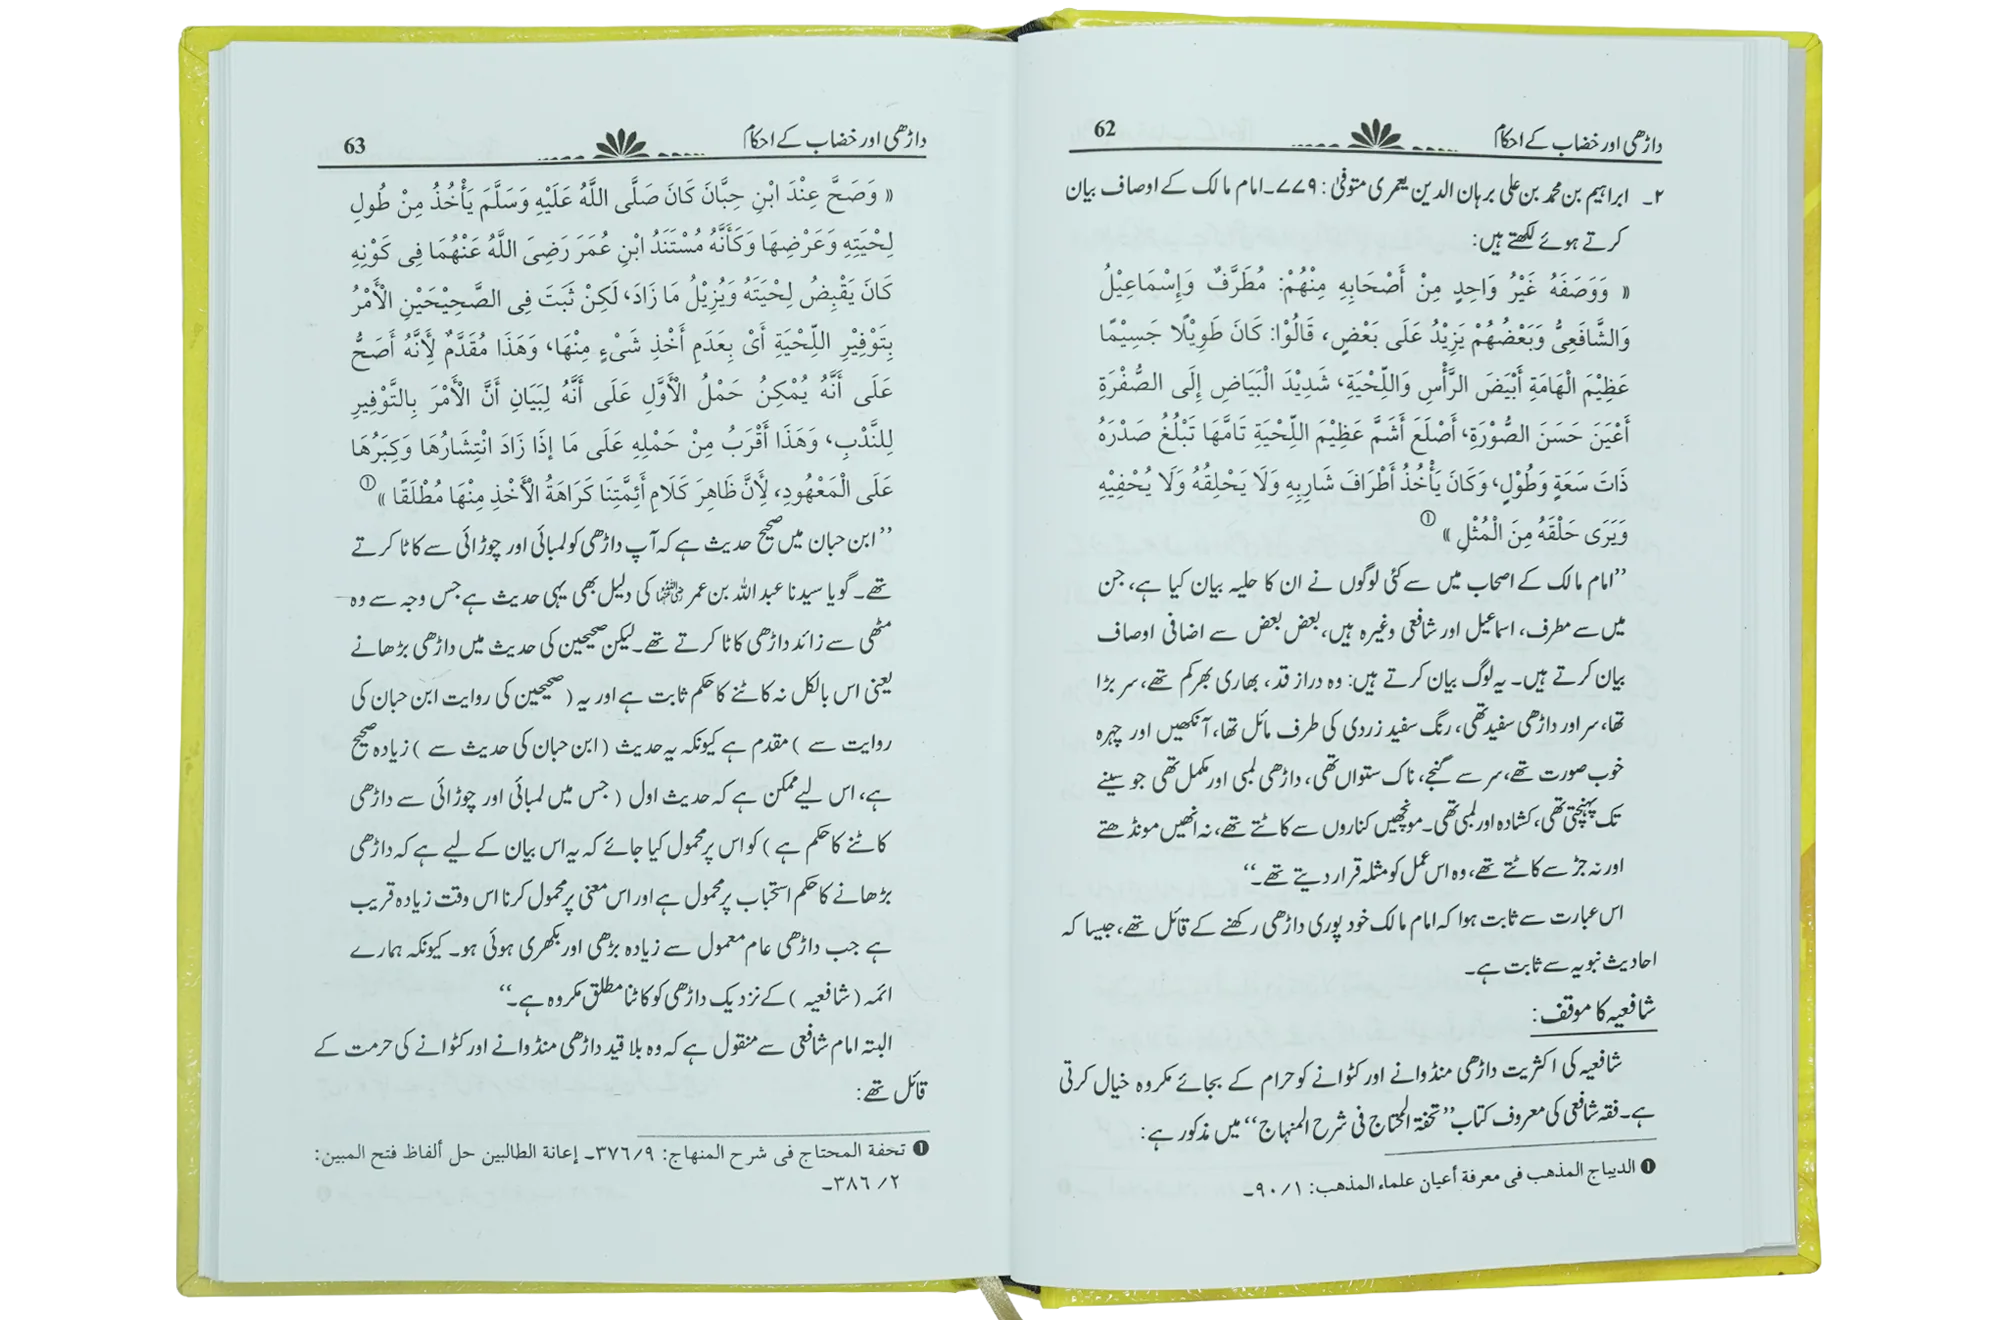 داڑھی اور خضاب کے احکام 62
۲۔ ابراہیم بن محمد بن علی برہان الدین یعمری متوفیٰ: ۷۷۹۔ امام مالک کے اوصاف بیان
کرتے ہوئے لکھتے ہیں:
« وَوَصَفَهُ غَيْرُ وَاحِدٍ مِنْ أَصْحَابِهِ مِنْهُمْ: مُطَرَّفٌ وَإِسْمَاعِيْلُ
وَالشَّافَعِىُّ وَبَعْضُهُمْ يَزِيْدُ عَلَى بَعْضٍ، قَالُوْا: كَانَ طَوِيْلًا جَسِيْمًا
عَظِيْمَ الْهَامَةِ أَبْيَضَ الرَّأْسِ وَاللِّحْيَةِ، شَدِيْدَ الْبَيَاضِ إِلَى الصُّفْرَةِ
أَعْيَنَ حَسَنَ الصُّوْرَةِ، أَصْلَعَ أَشَمَّ عَظِيْمَ اللِّحْيَةِ تَامَّهَا تَبْلُغُ صَدْرَهُ
ذَاتَ سَعَةٍ وَطُوْلٍ، وَكَانَ يَأْخُذُ أَطْرَافَ شَارِبِهِ وَلَا يَحْلِقُهُ وَلَا يُحْفِيْهِ
وَيَرَى حَلْقَهُ مِنَ الْمُثْلِ » ①
’’امام مالک کے اصحاب میں سے کئی لوگوں نے ان کا حلیہ بیان کیا ہے، جن
میں سے مطرف، اسماعیل اور شافعی وغیرہ ہیں، بعض بعض سے اضافی اوصاف
بیان کرتے ہیں۔ یہ لوگ بیان کرتے ہیں: وہ دراز قد، بھاری بھرکم تھے، سر بڑا
تھا، سر اور داڑھی سفید تھی، رنگ سفید زردی کی طرف مائل تھا، آنکھیں اور چہرہ
خوب صورت تھے، سر سے گنجے، ناک ستواں تھی، داڑھی لمبی اور مکمل تھی جو سینے
تک پہنچتی تھی، کشادہ اور لمبی تھی۔ مونچھیں کناروں سے کاٹتے تھے، نہ انھیں مونڈھتے
اور نہ جڑ سے کاٹتے تھے، وہ اس عمل کو مثلہ قرار دیتے تھے۔‘‘
اس عبارت سے ثابت ہوا کہ امام مالک خود پوری داڑھی رکھنے کے قائل تھے، جیسا کہ
احادیث نبویہ سے ثابت ہے۔
شافعیہ کا موقف:
شافعیہ کی اکثریت داڑھی منڈوانے اور کٹوانے کو حرام کے بجائے مکروہ خیال کرتی
ہے۔ فقہ شافعی کی معروف کتاب ’’تحفة المحتاج فی شرح المنہاج‘‘ میں مذکور ہے:
❶ الدیباج المذھب فی معرفة أعیان علماء المذھب: ۱/۹۰۔
داڑھی اور خضاب کے احکام 63
« وَصَحَّ عِنْدَ ابْنِ حِبَّانَ كَانَ صَلَّى اللَّهُ عَلَيْهِ وَسَلَّمَ يَأْخُذُ مِنْ طُولِ
لِحْيَتِهِ وَعَرْضِهَا وَكَأَنَّهُ مُسْتَنَدُ ابْنِ عُمَرَ رَضِىَ اللَّهُ عَنْهُمَا فِى كَوْنِهِ
كَانَ يَقْبِضُ لِحْيَتَهُ وَيُزِيْلُ مَا زَادَ، لَكِنْ ثَبَتَ فِى الصَّحِيْحَيْنِ الْأَمْرُ
بِتَوْفِيْرِ اللِّحْيَةِ أَىْ بِعَدَمِ أَخْذِ شَىْءٍ مِنْهَا، وَهَذَا مُقَدَّمٌ لِأَنَّهُ أَصَحُّ
عَلَى أَنَّهُ يُمْكِنُ حَمْلُ الْأَوَّلِ عَلَى أَنَّهُ لِبَيَانِ أَنَّ الْأَمْرَ بِالتَّوْفِيْرِ
لِلنَّدْبِ، وَهَذَا أَقْرَبُ مِنْ حَمْلِهِ عَلَى مَا إِذَا زَادَ انْتِشَارُهَا وَكِبَرُهَا
عَلَى الْمَعْهُودِ، لِأَنَّ ظَاهِرَ كَلَامِ أَئِمَّتِنَا كَرَاهَةُ الْأَخْذِ مِنْهَا مُطْلَقًا » ①
’’ابن حبان میں صحیح حدیث ہے کہ آپ داڑھی کو لمبائی اور چوڑائی سے کاٹا کرتے
تھے۔ گویا سیدنا عبد اللہ بن عمر رضی اللہ عنہما کی دلیل بھی یہی حدیث ہے جس وجہ سے وہ
مٹھی سے زائد داڑھی کاٹا کرتے تھے۔ لیکن صحیحین کی حدیث میں داڑھی بڑھانے
یعنی اس بالکل نہ کاٹنے کا حکم ثابت ہے اور یہ ( صحیحین کی روایت ابن حبان کی
روایت سے ) مقدم ہے کیونکہ یہ حدیث ( ابن حبان کی حدیث سے ) زیادہ صحیح
ہے، اس لیے ممکن ہے کہ حدیث اول ( جس میں لمبائی اور چوڑائی سے داڑھی
کاٹنے کا حکم ہے ) کو اس پر محمول کیا جائے کہ یہ اس بیان کے لیے ہے کہ داڑھی
بڑھانے کا حکم استحباب پر محمول ہے اور اس معنی پر محمول کرنا اس وقت زیادہ قریب
ہے جب داڑھی عام معمول سے زیادہ بڑھی اور بکھری ہوئی ہو۔ کیونکہ ہمارے
ائمہ ( شافعیہ ) کے نزدیک داڑھی کو کاٹنا مطلق مکروہ ہے۔‘‘
البتہ امام شافعی سے منقول ہے کہ وہ بلا قید داڑھی منڈوانے اور کٹوانے کی حرمت کے
قائل تھے:
❶ تحفة المحتاج فی شرح المنهاج: ۹/۳۷٦۔ إعانة الطالبین حل ألفاظ فتح المبین:
۲/ ۳۸٦۔